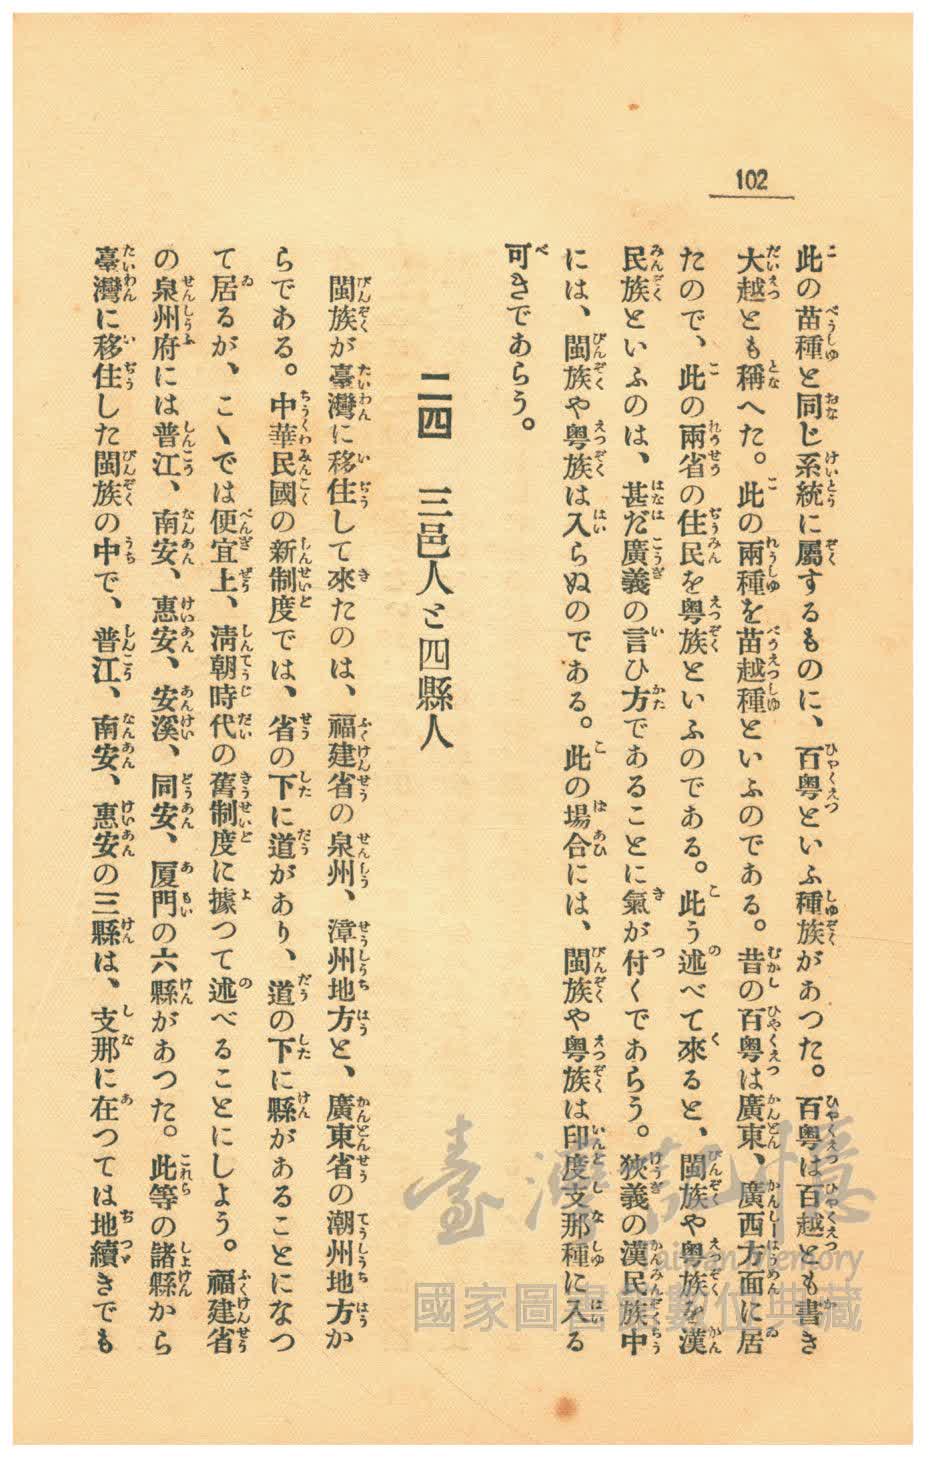 102
此の苗種と同じ系統に屬するものに、百粤といふ種族があつた。百粤は百越とも書き
大越とも稱へた。此の兩種を苗越種といふのである。昔の百粤は廣東、廣西方面に居
たので、此の兩省の住民を粤族といふのである。此う述べて來ると、閩族や粤族を漢
民族といふのは、甚だ廣義の言ひ方であることに氣が付くであらう。狹義の漢民族中
には、閩族や粤族は入らぬのである。此の場合には、閩族や粤族は印度支那種に入る
可きであらう。
二四 三邑人と四縣人
閩族が臺灣に移住して來たのは、福建省の泉州、漳州地方と、廣東省の潮州地方か
らである。中華民國の新制度では、省の下に道があり、道の下に縣があることになつ
て居るが、こゝでは便宜上、淸朝時代の舊制度に據つて述べることにしよう。福建省
の泉州府には普江、南安、惠安、安溪、同安、厦門の六縣があつた。此等の諸縣から
臺灣に移住した閩族の中で、普江、南安、惠安の三縣は、支那に在つては地續きでも
臺灣記憶
Taiwan Memory
國家圖書館數位典藏